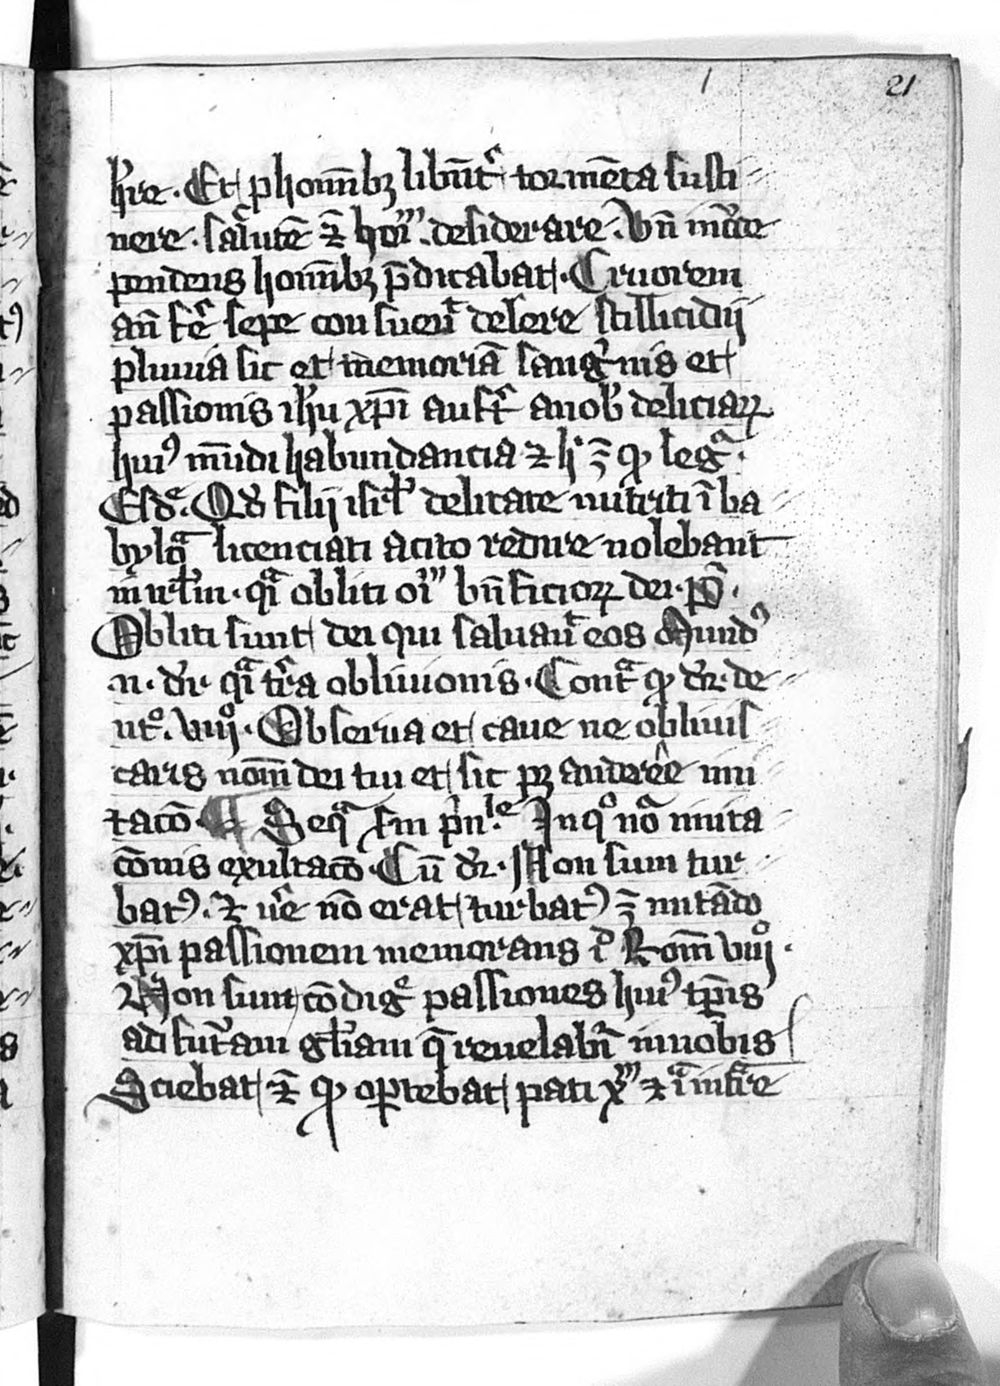 21
h'ıre. Et p homı̄bꝫ libn̄t' tormēta susti
nere. saľutē ⁊̄ hoı̄ʼ desiderare. Vn̄ in c̄ce
pendens homı̄bꝫ p̄dicabat. Cruorem
an̄ sepe consueu̓t delere stillicidij
pluuia sic et memoriā sang̓nis et
passionis ih̓u xp̄i aufert̓ a nob̓ deliciaꝝ
huiꝰ mūdi habundancia ⁊ h̓ ꝫ̄ ꝙ leg̓.
Esd̓. Qd̓ filij isrl̓ delicate nut̓ti ī ba
byloā licenciati a cito redire nolebant
in irl̓m. q̓a obliti oı̄ʼ bn̄ficioꝝ dei. pō.
Obliti sunt dei qui saluau̓t eos Mundꝰ
.n. dr̓ q̓a tr̓a obliuionis. Cont̓ ꝙ dr̓ de
ut̊. viij̊. Obserua et caue ne obliuis
caris nom̄ dei tui et sic pꝫ
tacō. Seq̓ s̄m p̓nle In q̊ nōa mıta
cōnis exultacō. Cū dr̓. Non sum tur
batꝰ. ⁊ ue̓ nō erat turbatꝰ ꝫ̄ mitādo
xp̄i passionem memorans id̊ Rom̄ viij̊.
Non sunt cōdig̓ passiones huiꝰ tp̄is
ad fut̓am gl̓iam q̄ reuelabit̓ in nobis
Sciebat ⁊̄ ꝙ oꝑtebat pati xp̄m ⁊ ita int̓re